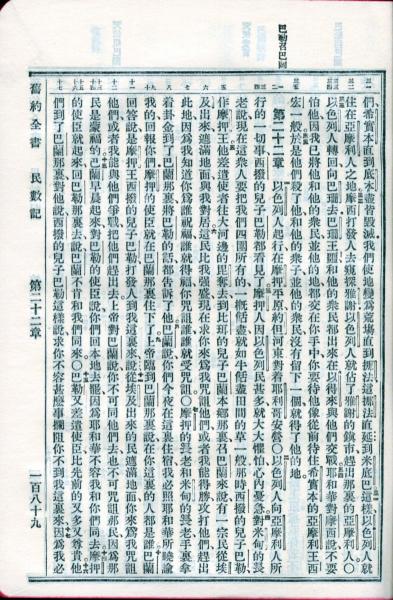 巴勒召巴蘭
們希實本直到底本盡皆毀壞我們使地變為荒場直到挪法這挪法直延到米底巴這樣以色列人就
住在亞摩利人之地摩西打發人去窺探雅謝以色列人就佔了雅謝的鎮市趕出那裏的亞摩利人○
以色列人轉回向巴珊去巴珊王噩和他的衆民都出來在以得來與他們交戰耶和華對摩西說不要
怕他因我已將他和他的衆民並他的地都交在你手中你要待他像從前待住希實本的亞摩利王西
宏一般於是他們殺了他和他的衆子並他的衆民沒有留下一個就得了他的地
第二十二章 以色列人起行在摩押平原約但河東對着耶利哥安營○以色列人向亞摩利人所
行的一切事西撥的兒子巴勒都看見了摩押人因以色列民甚多就大大懼怕心內憂急對米甸的長
老說現在這衆人要把我們四圍所有的一概餂盡就如牛餂盡田間的草一般那時西撥的兒子巴勒
作摩押王他差遣使者往大河邊的毘奪去到比珥的兒子巴蘭本鄉那裏召巴蘭來說有一宗民從埃
及出來遮滿地面與我對居這民比我強盛現在求你來為我咒詛他們或者我能得勝攻打他們趕出
此地因為我知道你為誰祝福誰就得福你咒詛誰誰就受咒詛○摩押的長老和米甸的長老手裏拿
着卦金到了巴蘭那裏將巴勒的話都告訴了他巴蘭說你們今夜在這裏住宿我必照耶和華所曉諭
我的回報你們摩押的使臣就在巴蘭那裏住下了上帝臨到巴蘭那裏說在你這裏的人都是誰巴蘭
回答說是摩押王西撥的兒子巴勒打發人到我這裏來說從埃及出來的民遮滿地面你來為我咒詛
他們或者我能與他們爭戰把他們趕出去上帝對巴蘭說你不可同他們去也不可咒詛那民因為那
民是蒙福的巴蘭早晨起來對巴勒的使臣說你們回本地去罷因為耶和華不容我和你們同去摩押
的使臣就起來回到巴勒那裏去說巴蘭不肯和我們同來○巴勒又差遣使臣比先前的又多又尊貴他
們到了巴蘭那裏對他說西撥的兒子巴勒這樣說求你不容甚麼事攔阻你不到我這裏來因為我必
舊約全書 民數記 第二十二章 一百八十九